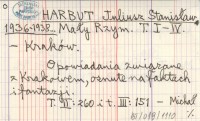 HARBUT Juliusz Stanisław
1936-1938. Mały Rzym. T. I-IV.
- Kraków.
Opowiadania związane
z Krakowem, osnute na faktach
i fantazji.
T. II: 260 i t. III: 151 - Michał